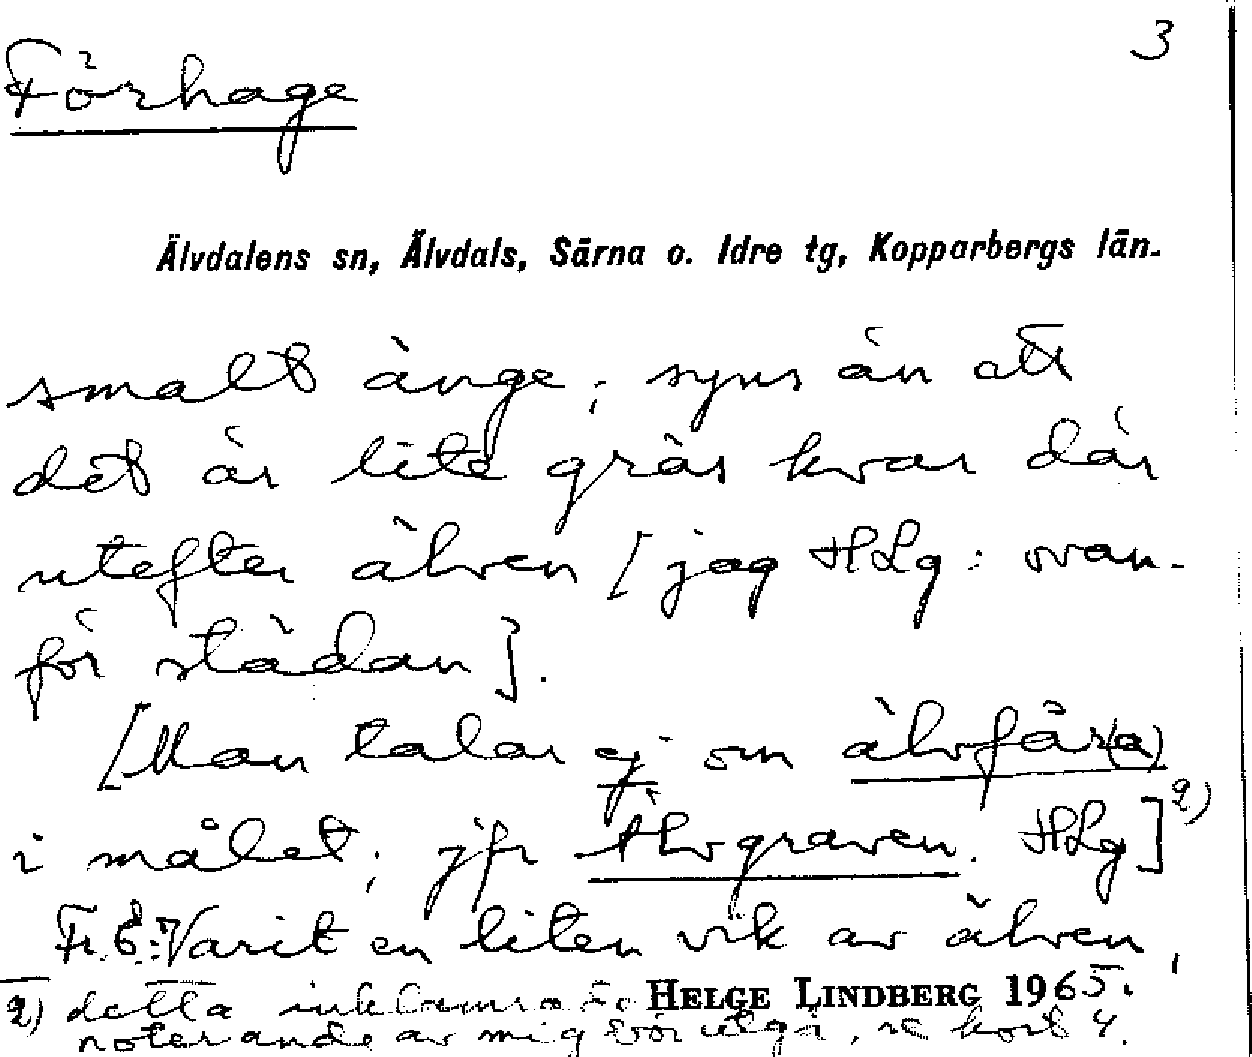 3
Förhage
Älvdalens sn, Älvdals, Särna o. Idre tg, Kopparbergs län.
smalt änge; syns än att
det är lite gräs kvar där
utefter älven [jag HLg: ovan-
för städan].
[Man talar ej om älvfår(a)
i målet; jfr Älvgraven. HLg] 2)
Fr. E.: Varit en liten vik av älven,
HELGE LINDBERG 1965.
2) detta inklamrade
noterande av mig bör utgå, se kort 4.